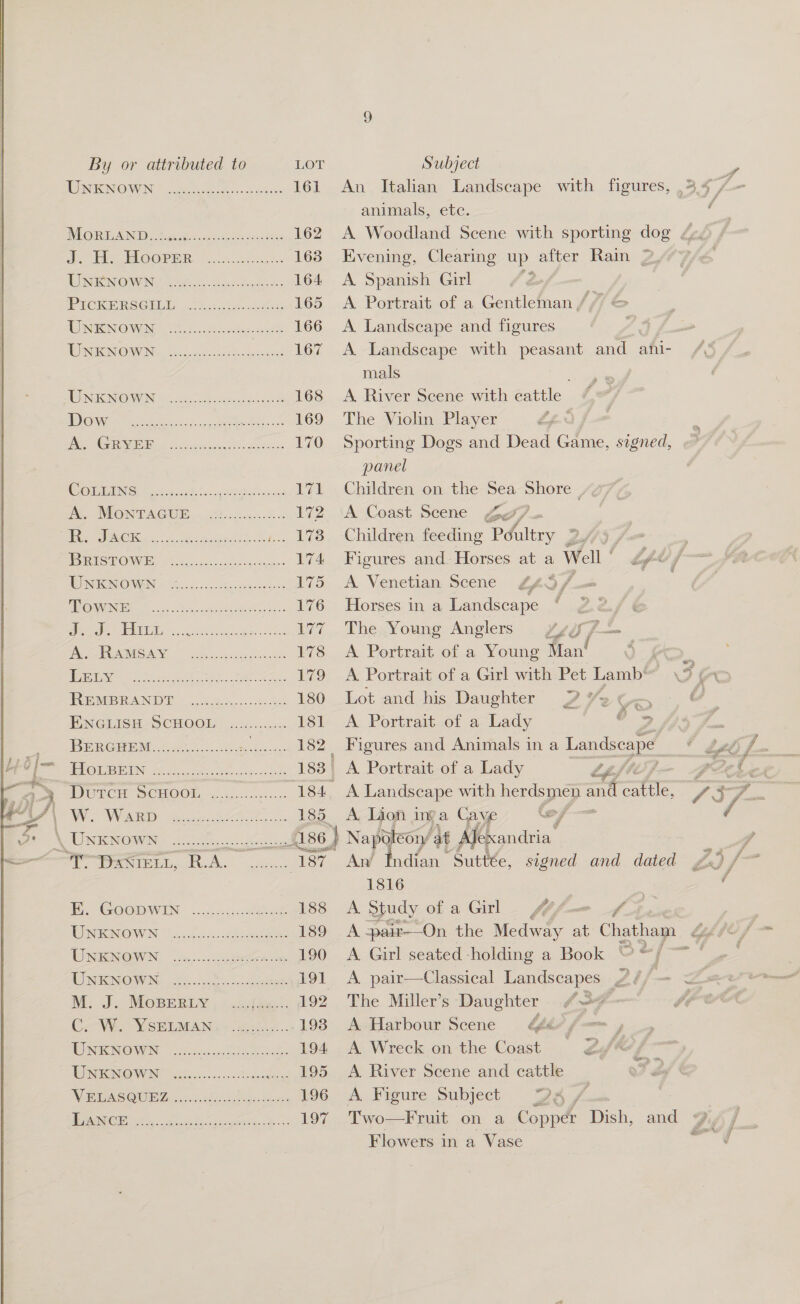 9
By or attributed to LOT Subject
UNKNOWN ........................ 161 An Italian Landscape with figures,
animals, etc.
MORLAND........................ 162 A Woodland Scene with sporting dog
J. H. HOOPER ............... 163 Evening, Clearing up after Rain
UNKNOWN ........................ 164 A Spanish Girl
PICKERSGILL .................. 165 A Portrait of a Gentleman
UNKNOWN ........................ 166 A Landscape and figures
UNKNOWN ........................ 167 A Landscape with peasant and ani-
mals
UNKNOWN ........................ 168 A River Scene with cattle
DOW .............................. 169 The Violin Player
A. GRYEF ..................... 170 Sporting Dogs and Dead Game, signed,
panel
COLLINS ........................ 171 Children on the Sea Shore
A. MONTAGUE ............... 172 A Coast Scene
R. JACK ........................ 173 Children feeding Poultry
BRISTOWE ..................... 174 Figures and Horses at a Well
UNKNOWN ........................ 175 A Venetian Scene
TOWNE ........................... 176 Horses in a Landscape
J. J. HILL ..................... 177 The Young Anglers
A. RAMSAY .................. 178 A Portrait of a Young Man
LELY .............................. 179 A Portrait of a Girl with Pet Lamb
REMBRANDT .................. 180 Lot and his Daughter
ENGLISH SCHOOL ............ 181 A Portrait of a Lady
BERGHEM........................ 182 Figures and Animals in a Landscape
HOLBEIN ........................ 183 A Portrait of a Lady
DUTCH SCHOOL ............... 184 A Landscape with herdsmen and cattle,
W. WARD ..................... 185 A Lion in a Cave
UNKNOWN ........................ 186 Napoleon at Alexandria
T. DANIELL, R.A. ......... 187 An Indian Suttée, signed and dated
1816
E. GOODWIN .................. 188 A Study of a Girl
UNKNOWN ........................ 189 A pair—On the Medway at Chatham
UNKNOWN ........................ 190 A Girl seated holding a Book
UNKNOWN ........................ 191 A pair—Classical Landscapes
M. J. MOBERLY ............ 192 The Miller's Daughter
C. W. YSELMAN ............ 193 A Harbour Scene
UNKNOWN ........................ 194 A Wreck on the Coast
UNKNOWN ........................ 195 A River Scene and cattle
VELASQUEZ ..................... 196 A Figure Subject
LANCE ........................... 197 Two—Fruit on a Copper Dish, and
Flowers in a Vase